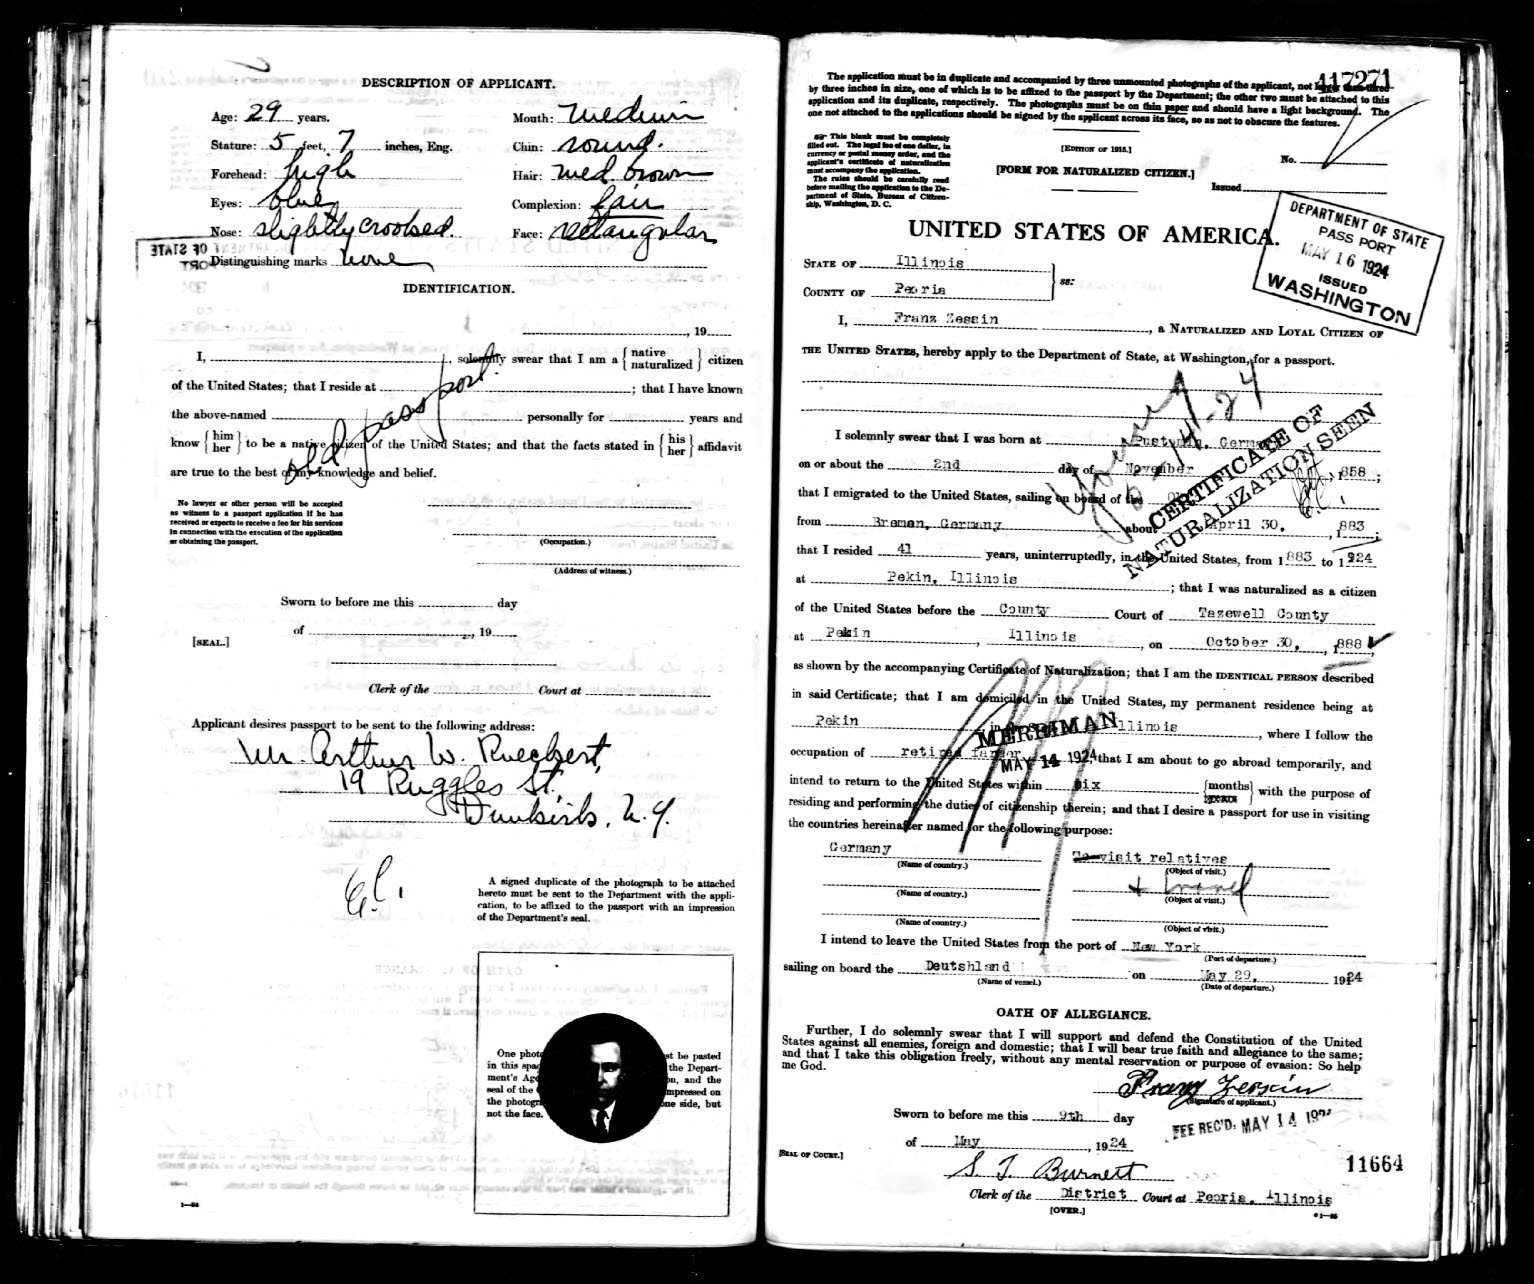 DESCRIPTION OF APPLICANT.
Age: 29 years.
Mouth: medium
Stature: 5 feet, 7 inches, Eng.
Chin: round.
Forehead: high
Hair: med. brown
Eyes: blue
Complexion: fair
Nose: slightly crooked.
Face: rectangular
Distinguishing marks none
IDENTIFICATION.
, 19
I, , solemnly swear that I am a { native naturalized } citizen
of the United States; that I reside at ; that I have known
the above-named personally for years and
know { him her } to be a native citizen of the United States; and that the facts stated in { his her } affidavit
are true to the best of my knowledge and belief.
old passport.
No lawyer or other person will be accepted
as witness to a passport application if he has
received or expects to receive a fee for his services
in connection with the execution of the application
or obtaining the passport.
(Occupation.)
(Address of witness.)
Sworn to before me this day
of , 19
[SEAL.]
Clerk of the Court at
Applicant desires passport to be sent to the following address:
Mr. Arthur W. Rueckert,
19 Ruggles St.,
Dunkirk, N.Y.
A signed duplicate of the photograph to be attached
hereto must be sent to the Department with the appli-
cation, to be affixed to the passport with an impression
of the Department's seal.
One photo st be pasted
in this spac the Depart-
ment's Age n, and the
seal of the mpressed on
the photogr ne side, but
not the face.
The application must be in duplicate and accompanied by three unmounted photographs of the applicant, not larger than three
by three inches in size, one of which is to be affixed to the passport by the Department; the other two must be attached to this
application and its duplicate, respectively. The photographs must be on thin paper and should have a light background. The
one not attached to the applications should be signed by the applicant across its face, so as not to obscure the features.
417271
This blank must be completely
filled out. The legal fee of one dollar, in
currency or postal money order, and the
applicant's certificate of naturalization
must accompany the application.
The rules should be carefully read
before mailing the application to the De-
partment of State, Bureau of Citizen-
ship, Washington, D. C.
[EDITION OF 1915.]
[FORM FOR NATURALIZED CITIZEN.]
No.
Issued
UNITED STATES OF AMERICA.
DEPARTMENT OF STATE
PASS PORT
MAY 16 1924
ISSUED
WASHINGTON
STATE OF Illinois
COUNTY OF Peoria
ss:
I, Franz Zessin , a NATURALIZED AND LOYAL CITIZEN OF
THE UNITED STATES, hereby apply to the Department of State, at Washington, for a passport.
I solemnly swear that I was born at Pustymin, Germany
on or about the 2nd day of November , 1858;
that I emigrated to the United States, sailing on board of the
from Bremen, Germany about April 30, , 1883;
that I resided 41 years, uninterruptedly, in the United States, from 1883 to 1924
at Pekin, Illinois ; that I was naturalized as a citizen
of the United States before the County Court of Tazewell County
at Pekin , Illinois , on October 30, , 1888,
CERTIFICATE OF
NATURALIZATION SEEN
as shown by the accompanying Certificate of Naturalization; that I am the IDENTICAL PERSON described
in said Certificate; that I am domiciled in the United States, my permanent residence being at
Pekin , in the State of Illinois , where I follow the
occupation of retired farmer ; that I am about to go abroad temporarily, and
MERRIMAN
MAY 14 1924
intend to return to the United States within six { months years } with the purpose of
residing and performing the duties of citizenship therein; and that I desire a passport for use in visiting
the countries hereinafter named for the following purpose:
Germany To visit relatives
(Name of country.) (Object of visit.)
+ travel
(Name of country.) (Object of visit.)
(Name of country.) (Object of visit.)
I intend to leave the United States from the port of New York
(Port of departure.)
sailing on board the Deutshland on May 29, 1924
(Name of vessel.) (Date of departure.)
OATH OF ALLEGIANCE.
Further, I do solemnly swear that I will support and defend the Constitution of the United
States against all enemies, foreign and domestic; that I will bear true faith and allegiance to the same;
and that I take this obligation freely, without any mental reservation or purpose of evasion: So help
me God.
Franz Zessin
(Signature of applicant.)
Sworn to before me this 9th day
of May , 1924
FEE REC'D. MAY 14 192
[SEAL OF COURT.]
11664
S. T. Burnett
Clerk of the District Court at Peoria, Illinois
[OVER.]